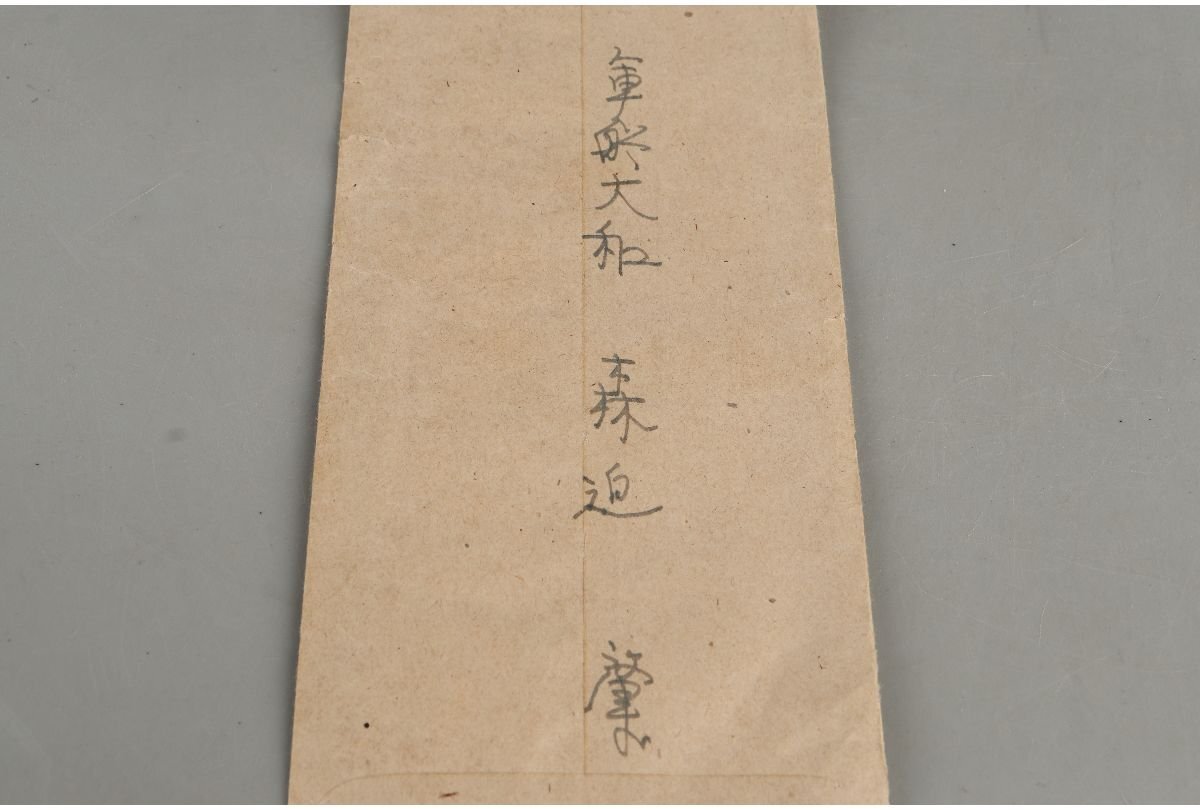 軍船大和 森迫 肇